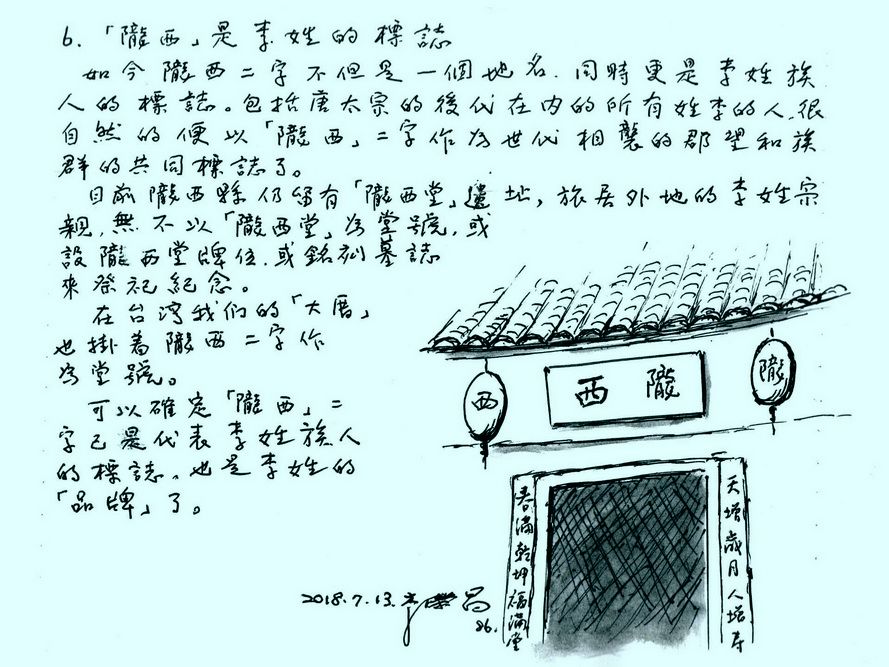 6.「隴西」是李姓的標誌
如今隴西二字不但是一個地名.同時更是李姓族
人的標誌。包括唐太宗的後代在內的所有姓李的人.很
自然的便以「隴西」二字作為世代相襲的郡望和族
群的共同標誌了。
目前隴西縣仍留有「隴西堂」遺址,旅居外地的李姓宗
親,無不以「隴西堂」為堂號,或
設隴西堂牌位.或銘刻墓誌
來祭祀紀念。
在台灣我們的「大厝」
也掛着隴西二字作
為堂號。
可以確定「隴西」二
字已是代表李姓族人
的標誌。也是李姓的
「品牌」了。
隴
西
隴西
天增歲月人增壽
春滿乾坤福滿堂
2018.7.13.
86.